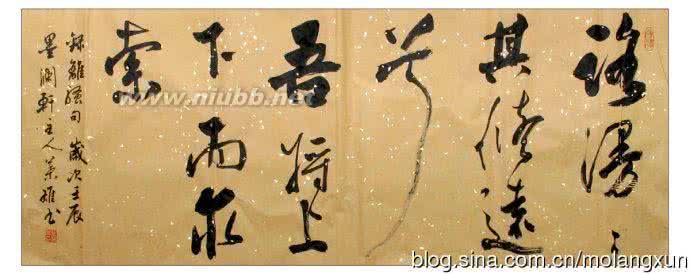 路漫々
其脩遠
兮
吾將上
下而求
索
録離騷句 歲次壬辰
墨閬軒主人 雄书
www.niubb.net
blog.sina.com.cn/molangxun